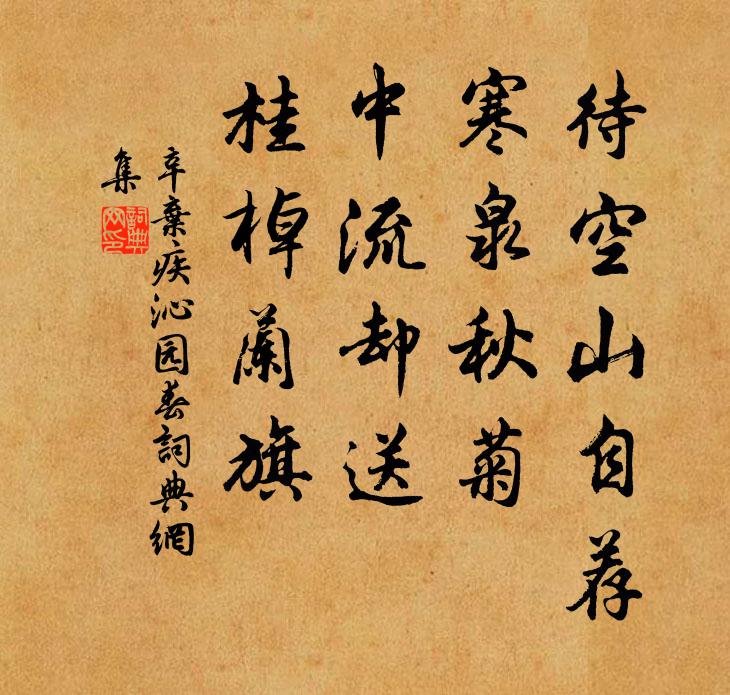 待空山自荐
寒泉秋菊
中流却送
桂棹蘭旗
辛棄疾沁园春詞典網
集
詞典网印